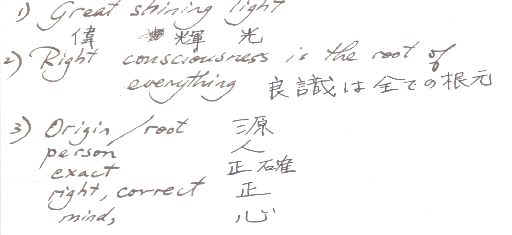 1) Great shining light
偉 輝 光
2) Right consciousness is the root of
everything 良識は全ての根元
3) Origin/root 源
person 人
exact 正確
right, correct 正
mind, 心